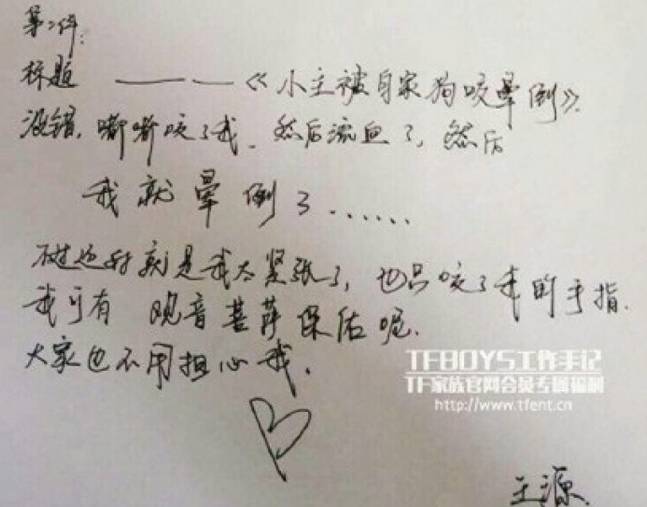 第2件:
标题 ————《小主被自家狗咬晕倒》
没错,嘶嘶咬了我.然后流血了,然后
我就晕倒了......
不过还好刻是我太紧张了,也只咬了我的手指.
我可有 观音菩萨保佑呢.
大家也不用担心我.
TFBOYS工作手记
TF家族官网会员专属福利
http://www.tfent.cn
王源